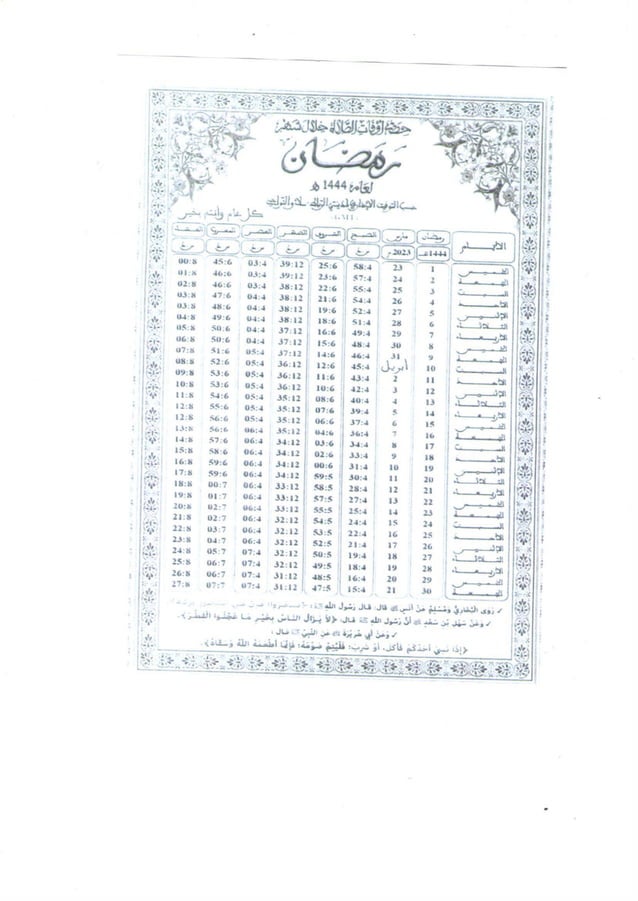 حصة أوقات الصلاة خلال شهر
رمضان
لعام 1444 هـ
كل عام وأنتم بخير
الأيام رمضان مارس الصبح الشروق الظهر العصر المغرب العشاء
1444هـ 2023م س م س م س م س م س م س م
الخميس 1 23 58:4 25:6 39:12 03:4 45:6 00:8
الجمعة 2 24 57:4 23:6 39:12 03:4 46:6 01:8
السبت 3 25 55:4 22:6 38:12 03:4 46:6 02:8
الأحد 4 26 54:4 21:6 38:12 04:4 47:6 03:8
الإثنين 5 27 52:4 19:6 38:12 04:4 48:6 03:8
الثلاثاء 6 28 51:4 18:6 38:12 04:4 49:6 04:8
الأربعاء 7 29 49:4 16:6 37:12 04:4 50:6 05:8
الخميس 8 30 48:4 15:6 37:12 04:4 50:6 06:8
الجمعة 9 31 46:4 14:6 37:12 05:4 51:6 07:8
السبت 10 أبريل 45:4 12:6 36:12 05:4 52:6 08:8
الأحد 11 2 43:4 11:6 36:12 05:4 53:6 09:8
الإثنين 12 3 42:4 10:6 36:12 05:4 53:6 10:8
الثلاثاء 13 4 40:4 08:6 35:12 05:4 54:6 11:8
الأربعاء 14 5 39:4 07:6 35:12 05:4 55:6 12:8
الخميس 15 6 37:4 06:6 35:12 05:4 56:6 12:8
الجمعة 16 7 36:4 04:6 35:12 06:4 56:6 13:8
السبت 17 8 34:4 03:6 34:12 06:4 57:6 14:8
الأحد 18 9 33:4 02:6 34:12 06:4 58:6 15:8
الإثنين 19 10 31:4 00:6 34:12 06:4 59:6 16:8
الثلاثاء 20 11 30:4 59:5 34:12 06:4 59:6 17:8
الأربعاء 21 12 28:4 58:5 33:12 06:4 00:7 18:8
الخميس 22 13 27:4 57:5 33:12 06:4 01:7 19:8
الجمعة 23 14 25:4 55:5 33:12 06:4 02:7 20:8
السبت 24 15 24:4 54:5 32:12 06:4 02:7 21:8
الأحد 25 16 22:4 53:5 32:12 06:4 03:7 22:8
الإثنين 26 17 21:4 52:5 32:12 06:4 04:7 23:8
الثلاثاء 27 18 19:4 50:5 32:12 07:4 05:7 24:8
الأربعاء 28 19 18:4 49:5 32:12 07:4 06:7 25:8
الخميس 29 20 16:4 48:5 31:12 07:4 06:7 26:8
الجمعة 30 21 15:4 47:5 31:12 07:4 07:7 27:8
✓ رَوَى البُخَارِيُّ وَمُسْلِم عَنْ أَنَسٍ ﷺ قَالَ: قَالَ رَسُولُ اللهِ ﷺ:
✓ وَعَنْ سَهْلِ بْنِ سَعْدٍ ﷺ أَنَّ رَسُولَ اللهِ ﷺ قَالَ: ﴿لاَ يَزَالُ النَّاسُ بِخَيْرٍ مَا عَجَّلُوا الْفِطْرَ﴾.
✓ وَعَنْ أَبِي هُرَيْرَةَ ﷺ عَنِ النَّبِيِّ ﷺ قَالَ:
﴿إِذَا نَسِيَ أَحَدُكُمْ فَأَكَلَ، أَوْ شَرِبَ؛ فَلْيُتِمَّ صَوْمَهُ؛ فَإِنَّمَا أَطْعَمَهُ اللهُ وَسَقَاهُ﴾.